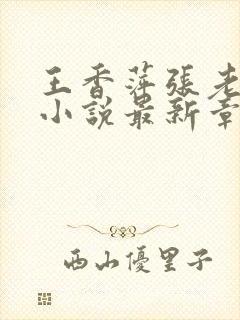 王香萍張老
小說最新章
西山優里子